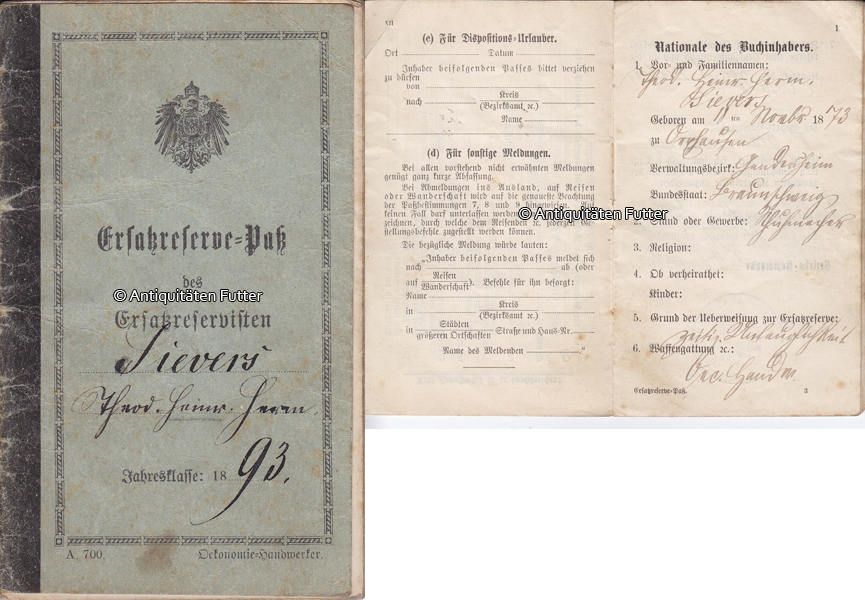 Ersatzreserve-Paß
des
© Antiquitäten Futter
Ersatzreservisten
Sievers
Theod. Heinr. Herm.
Jahresklasse: 18 93.
A. 700.
Oekonomie-Handwerker.
XII
(c) Für Dispositions-Urlauber.
Ort Datum
Inhaber beifolgenden Passes bittet verziehen
zu dürfen
von
Kreis
nach
(Bezirksamt ꝛc.)
Name
(d) Für sonstige Meldungen.
Bei allen vorstehend nicht erwähnten Meldungen
genügt ganz kurze Abfassung.
Bei Abmeldungen ins Ausland, auf Reisen
oder Wanderschaft wird auf die genaueste Beachtung
der Paßbestimmungen 7, 8 und 9 hingewiesen. Auf
keinen Fall darf unterlassen werden
zeichnen, durch welche dem Meldenden ꝛc. jederzeit Ge-
stellungsbefehle zugestellt werden können.
Die bezügliche Meldung würde lauten:
„Inhaber beifolgenden Passes meldet sich
nach ab (oder
Reisen
auf Wanderschaft). Befehle für ihn besorgt:
Name
Kreis
in
(Bezirksamt ꝛc.)
Städten
in größeren Ortschaften Straße und Haus-Nr.
Name des Meldenden “
© Antiquitäten Futter
1
Nationale des Buchinhabers.
1. Vor- und Familiennamen:
Theod. Heinr. Herm.
Sievers
Geboren am 11 ten Novbr 1873
zu Opperhausen
Verwaltungsbezirk: Gandersheim
Bundesstaat: Braunschweig
2. Stand oder Gewerbe: Schuhmacher
3. Religion:
4. Ob verheirathet:
Kinder:
5. Grund der Ueberweisung zur Ersatzreserve:
zeitig. Untauglichkeit
6. Waffengattung ꝛc.:
Oec. Handw.
Ersatzreserve-Paß.
3